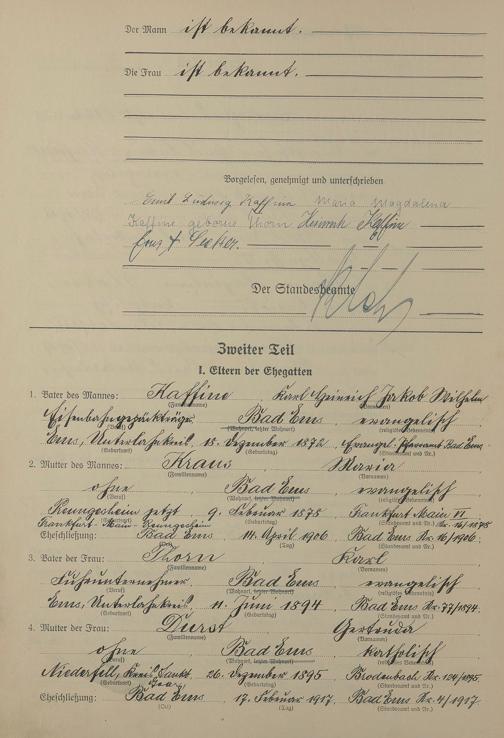 Der Mann ist bekannt.
Die Frau ist bekannt.
Vorgelesen, genehmigt und unterschrieben
Emil Ludwig Kaffine Maria Magdalena
Kaffine geborene Thorn Heinrich Kaffine
Der Standesbeamte
Zweiter Teil
I. Eltern der Ehegatten
1. Vater des Mannes: Kaffine Karl Heinrich Jakob Wilhelm
(Familienname) (Vornamen)
Eisenbahngepäckträger Bad Ems evangelisch
(Wohnort, letzter Wohnort)
Ems, Unterlahnkreis, 18. Dezember 1872 Evangel. Pfarramt Bad Ems
(Geburtsort) (Geburtstag) (Standesamt und Nr.)
2. Mutter des Mannes: Kraus Maria
(Familienname) (Vornamen)
ohne Bad Ems evangelisch
(Beruf) (Wohnort, letzter Wohnort)
jetzt 9. Februar 1878 Frankfurt Main VI
Frankfurt-Main Nr. 16/1878
(Geburtstag) (Standesamt und Nr.)
Eheschließung: Bad Ems 14. April 1906 Bad Ems Nr. 16/1906.
(Ort) (Tag) (Standesamt und Nr.)
3. Vater der Frau: Thorn Karl
(Familienname) (Vornamen)
Fuhrunternehmer Bad Ems evangelisch
(Beruf) (Wohnort, letzter Wohnort) (religiöses Bekenntnis)
Ems, Unterlahnkreis 11. Juni 1894 Bad Ems Nr. 77/1894.
(Geburtsort) (Geburtstag) (Standesamt und Nr.)
4. Mutter der Frau: Durst Gertruda
(Familienname) (Vornamen)
ohne Bad Ems katholisch
(Beruf) (Wohnort, letzter Wohnort)
Niederfell, Kreis Sankt 26. Dezember 1895 Brodenbach Nr. 124/1895.
Goar
(Geburtsort) (Geburtstag) (Standesamt und Nr.)
Eheschließung: Bad Ems 17. Februar 1917. Bad Ems Nr. 4/1917.
(Ort) (Tag) (Standesamt und Nr.)